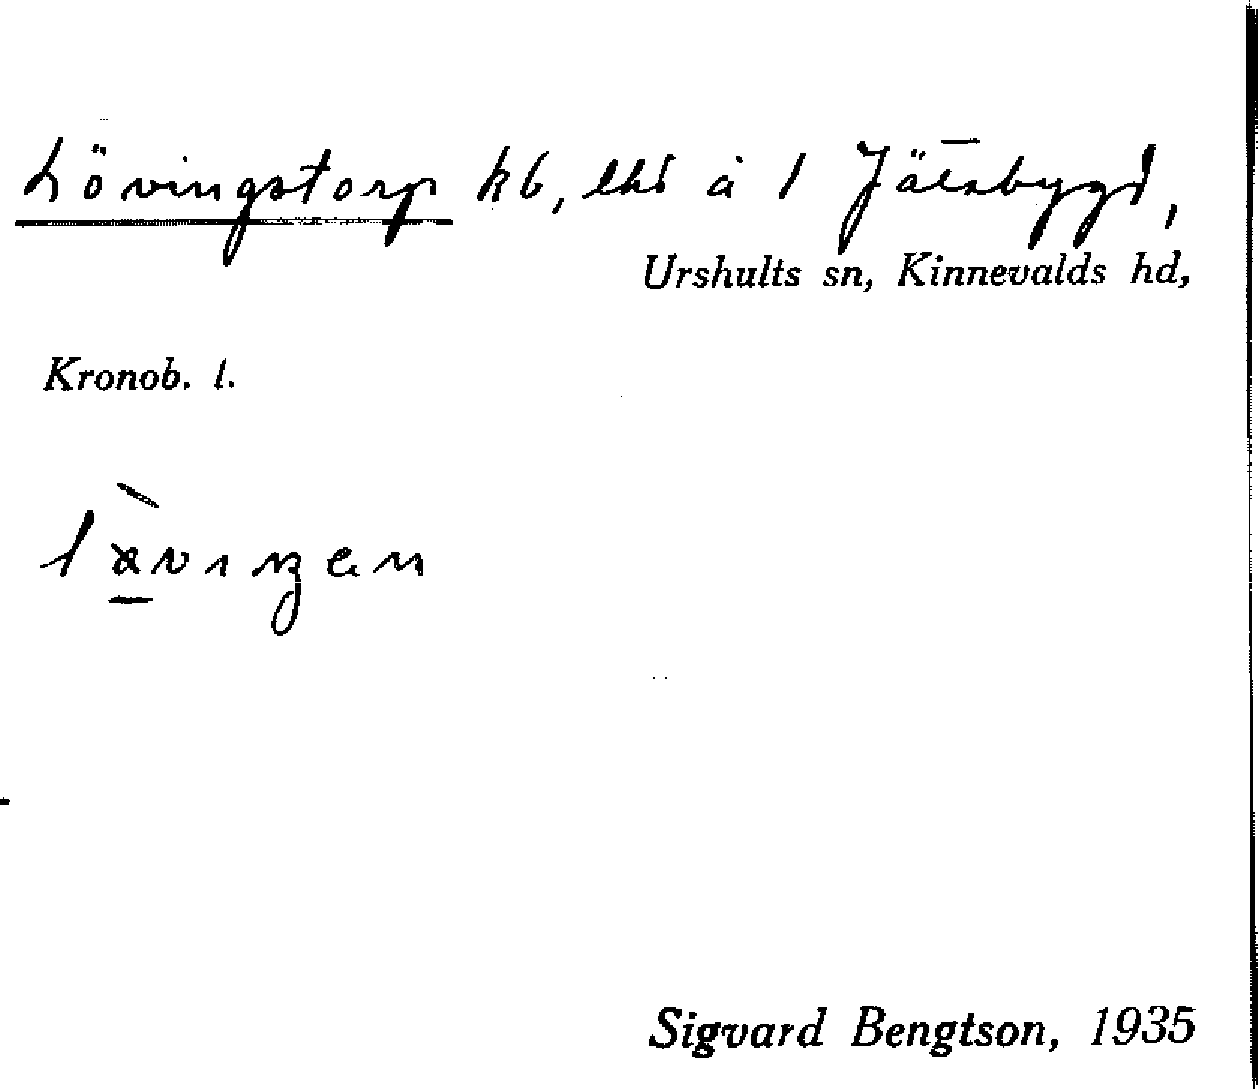 Lövingstorp kb, lhs å 1 Jätsbygd,
Urshults sn, Kinnevalds hd,
Kronob. l.
Sigvard Bengtson, 1935